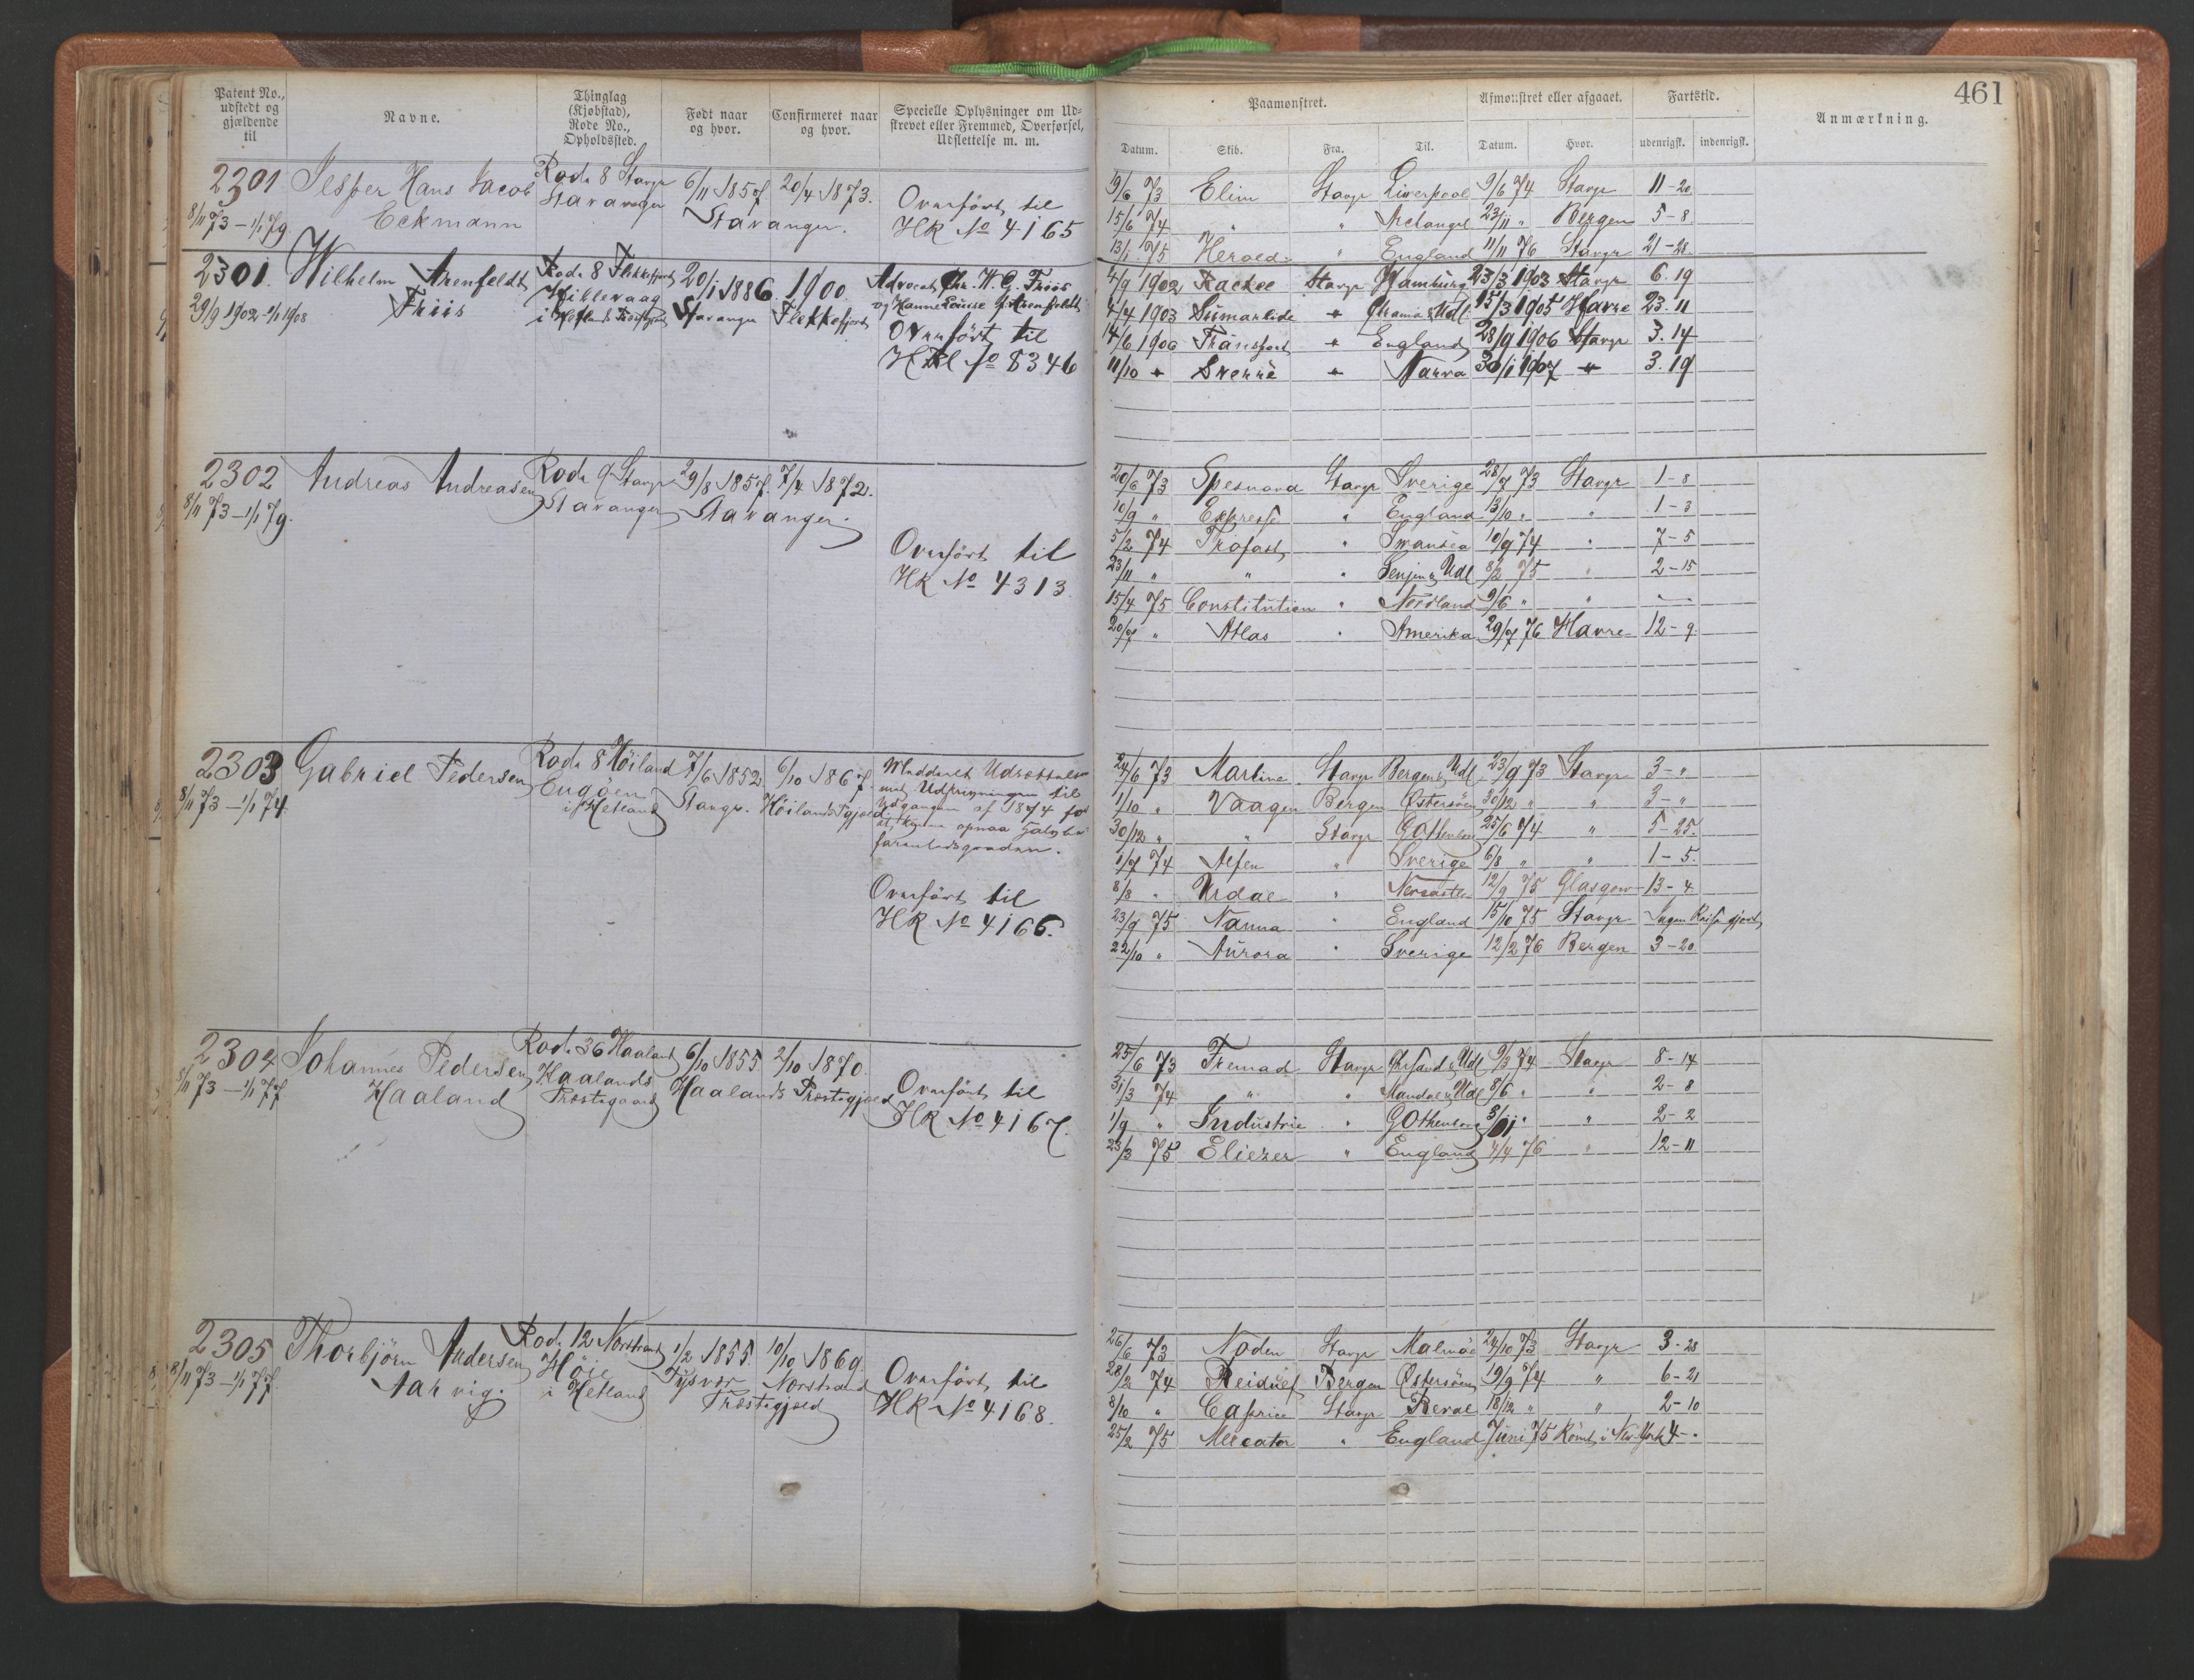 461
Patent No., udstedt og gjældende til
Navne.
Thinglag (Kjøbstad), Rode No., Opholdssted.
Født naar og hvor.
Confirmeret naar og hvor.
Specielle Oplysninger om Udskrevet eller Fremmed, Overførsel, Udslettelse m. m.
Paamønstret.
Afmønstret eller afgaaet.
Fartstid.
Anmærkning.
Datum. Skib. Fra. Til. Datum. Hvor. udenrigsk. indenrigsk.
2301 Jesper Hans Jacob Rode 8 Stavgr 6/11 1857 20/4 1873.
8/11 73 - 1/1 79. Eckmann Stavanger Stavanger.
Overført til
HR No 4165
9/6 73 Elim Stavgr Liverpool 9/6 74 Stavgr 11 - 20
15/6 74 " " Archangel 23/11 " Bergen 5 - 8
13/1 75 Herold " England 11/11 76 Stavgr 21 - 28
2301. Wilhelm Arenfeldt Rode 8 Flekkefjord 20/1 1886. 1900.
29/9 1902 - 1/1 1908 Friis Hillevaag Stavanger Flekkefjord
i Hetlands Præstgjæld
Advocat Chr. W. G. Friis
og Hanne Louise f. Arenfeldt
Overført til
HR No 8346
4/9 1902 Stavgr Hamburg 23/3 1903 Stavgr 6. 19
4/4 1903 " 15/3 1905 Havre 23. 11
14/6 1906 Transport " England 28/9 1906 Stavgr 3. 14
11/10 " Sverre " Narva 30/1 1907 " 3. 19
2302 Andreas Andreasen Rode 9 Stavgr 29/8 1857. 7/4 1872.
8/11 73 - 1/1 79. Stavanger Stavanger.
Overført til
HR No 4313.
20/6 73 Stavgr Sverige 28/7 73 Stavgr 1 - 8
10/9 " Expresse " England 13/10 " " 1 - 3
5/2 74 Trofast " Swansea 10/9 74 " 7 - 5
23/11 " " " Senjen & Udl 8/2 75 " 2 - 15
15/4 75 Constitution " Nordland 9/6 " "
20/7 " Atlas " Amerika 29/7 76 Havre 12 - 9.
2303 Gabriel Pedersen Rode 8 Høiland 7/6 1852 6/10 1867.
8/11 73 - 1/1 74. Engøen Stavgr. Høilands Pgjæld
i Hetland
Meddeelt Udsættelse
med Udskrivningen til
Udgangen af 1874 for
at kunne opnaa halvbe-
farenhedsgraden.
Overført til
HR No 4166.
24/6 73 Martine Stavgr Bergen & Udl 23/9 73 Stavgr 3 - "
1/10 " Vaagen Bergen Østersøen 30/12 " " 3 - "
30/12 " " Stavgr Gothenborg 25/6 74 " 5 - 25.
1/7 74 Alfen " Sverige 6/8 " " 1 - 5.
8/8 " Urdal " Newcastle 12/9 75 Glasgow 13 - 4.
23/9 75 Nanna " England 15/10 75 Stavgr Ingen Reise gjort
22/10 " Aurora " Sverige 12/2 76 Bergen 3 - 20
2304 Johannes Pedersen Rode 36 Haaland 6/10 1855. 2/10 1870.
8/11 73 - 1/1 77 Haaland Haalands Haalands Præstegjæld
Præstegaard
Overført til
HR No 4167.
25/6 73 Fremad Stavgr Chrsand & Udl 9/3 74 Stavgr 8 - 14
31/3 74 " " Mandal & Udl 8/6 " " 2 - 8
1/9 " Industrie " Gothenborg 3/11 " " 2 - 2
23/3 75 Eliezer " England 4/4 76 " 12 - 11
2305 Thorbjörn Andersen Rode 12 Norstrand 1/2 1855. 10/10 1869.
8/11 73 - 1/1 77 Høie Tysvær Norstrand
i Hetland Præstegjæld
Overført til
HR No 4168.
26/6 73 Noden Stavgr Malmöe 24/10 73 Stavgr 3 - 28
28/2 74 Reidulf Bergen Østersøen 19/9 74 " 6 - 21
8/10 " Caprice Stavgr Reval 18/12 " " 2 - 10
25/2 75 Mercator " England Juni 75 Rømt i New-York 4 - "